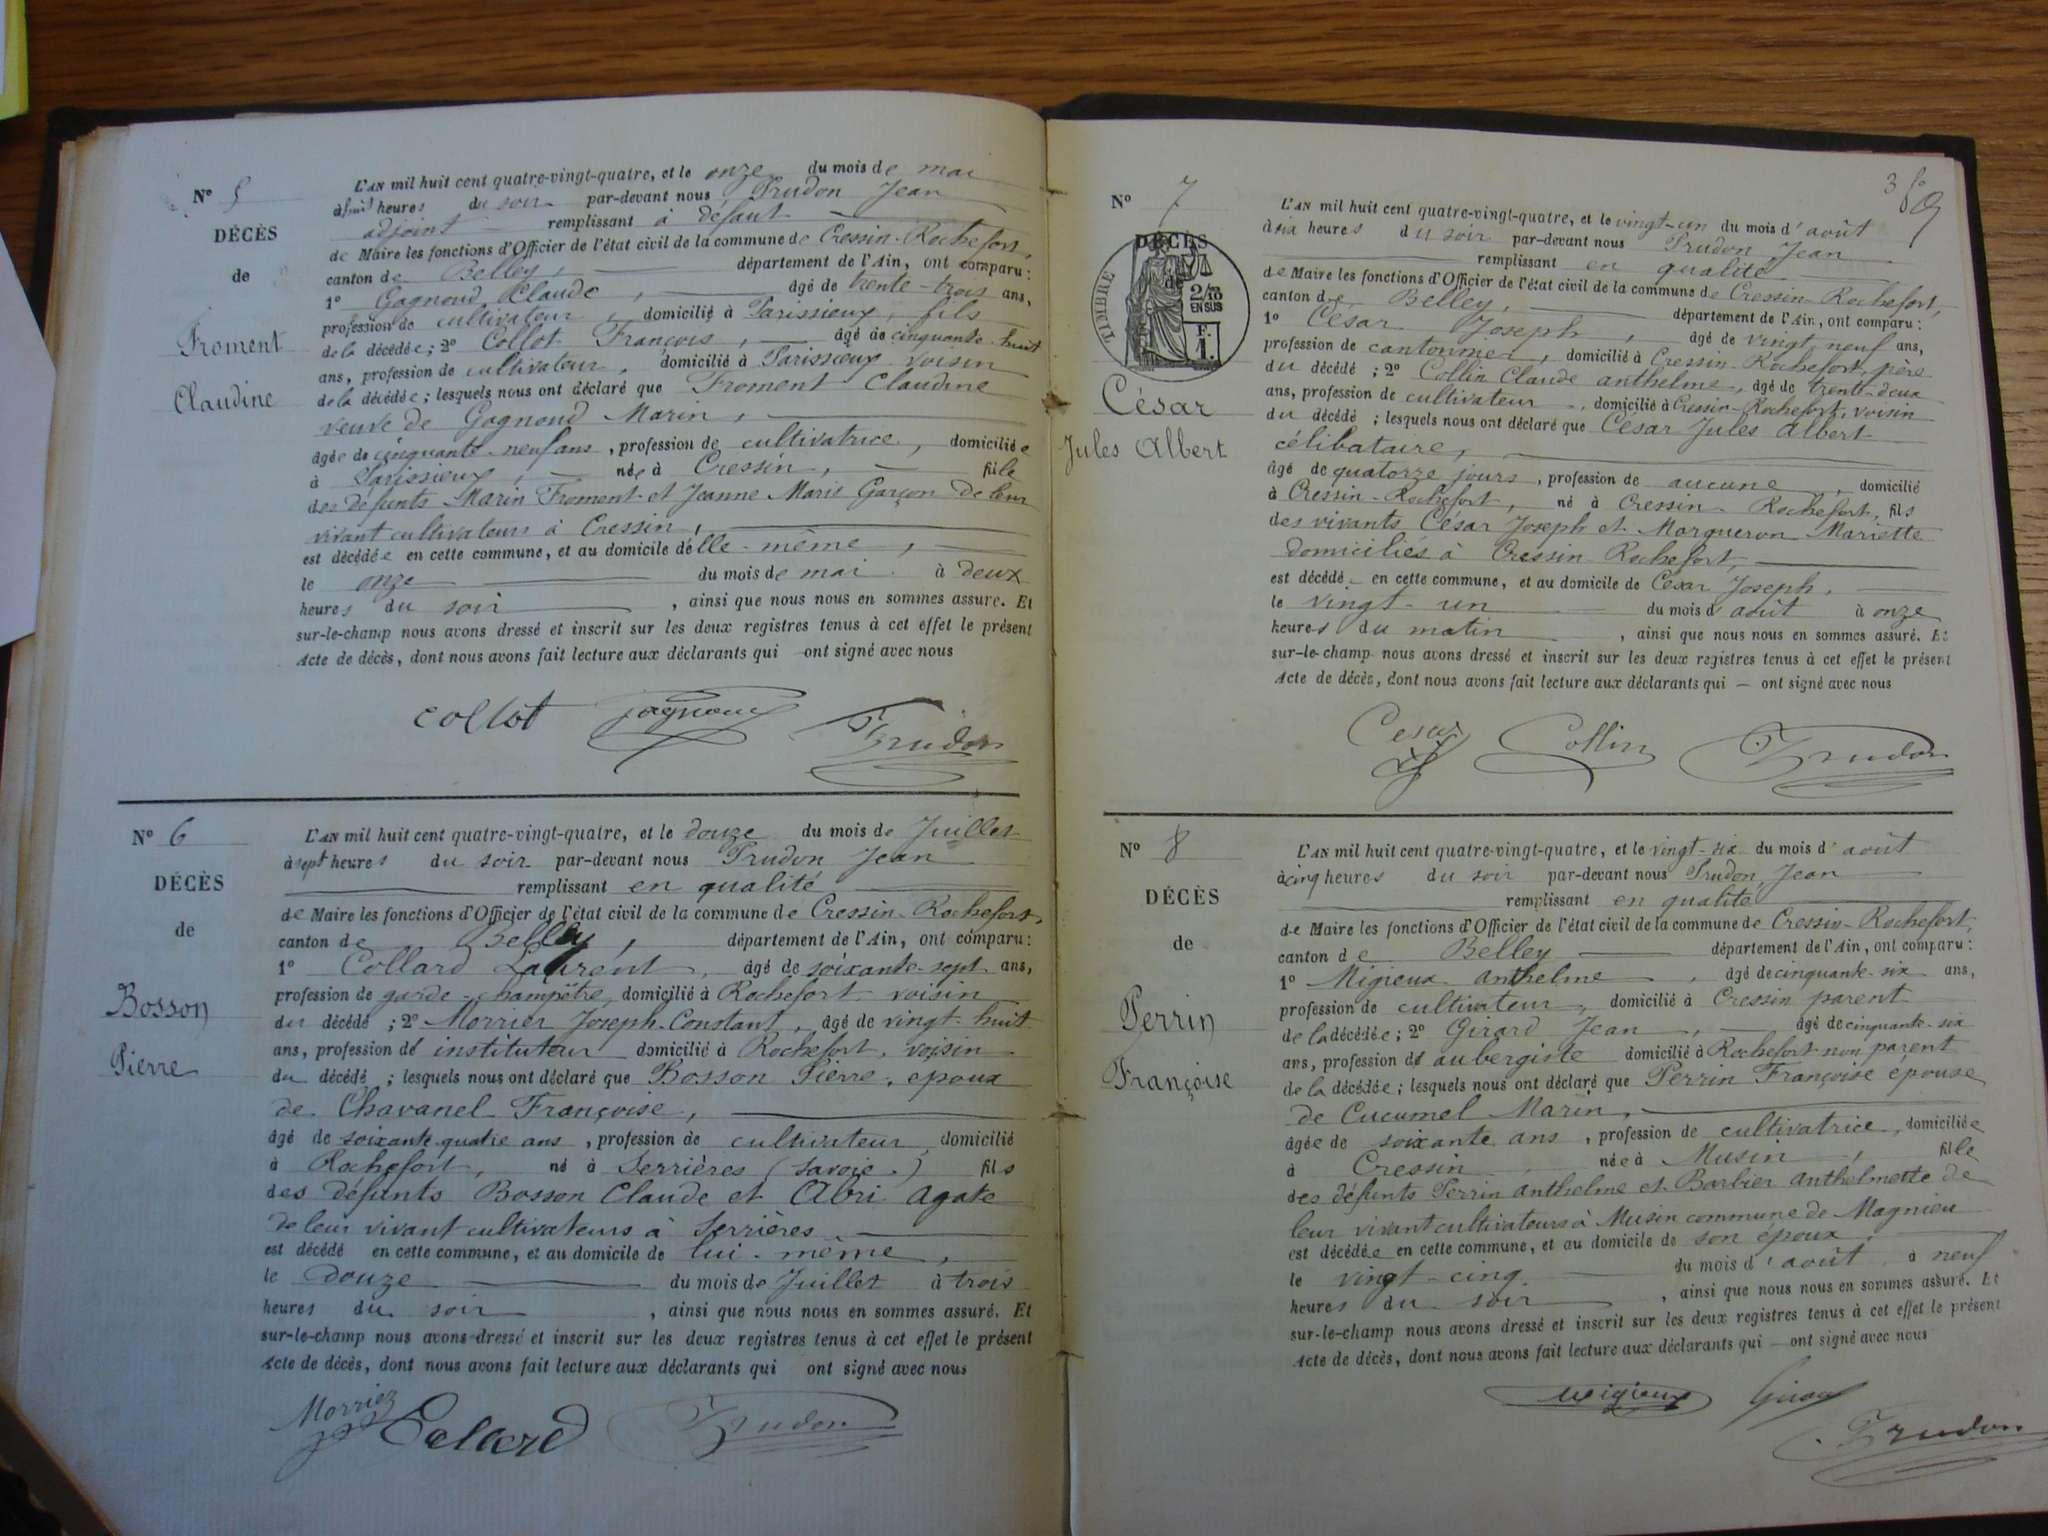 N° 5
DÉCÈS
de
Froment
Claudine
L'AN mil huit cent quatre-vingt-quatre, et le onze du mois de mai
à huit heures du soir par-devant nous Prudon Jean
adjoint remplissant à défaut
de Maire les fonctions d'Officier de l'état civil de la commune de Cressin-Rochefort,
canton de Belley, département de l'Ain, ont comparu:
1° Gagnoud Claude, âgé de trente-trois ans,
profession de cultivateur, domicilié à Parissieux, fils
de la décédée; 2° Collot François, âgé de cinquante-huit
ans, profession de cultivateur, domicilié à Parissieux voisin
de la décédée; lesquels nous ont déclaré que Froment Claudine
veuve de Gagnoud Marin,
âgée de cinquante-neuf ans, profession de cultivatrice, domiciliée
à Parissieux, née à Cressin, fille
des défunts Marin Froment et Jeanne Marie Garçon de leur
vivant cultivateurs à Cressin,
est décédée en cette commune, et au domicile d'elle-même,
le onze du mois de mai à deux
heures du soir, ainsi que nous nous en sommes assuré. Et
sur-le-champ nous avons dressé et inscrit sur les deux registres tenus à cet effet le présent
Acte de décès, dont nous avons fait lecture aux déclarants qui ont signé avec nous
Collot Gagnoud Prudon
N° 6
DÉCÈS
de
Bosson
Pierre
L'AN mil huit cent quatre-vingt-quatre, et le douze du mois de Juillet
à sept heures du soir par-devant nous Prudon Jean
remplissant en qualité
de Maire les fonctions d'Officier de l'état civil de la commune de Cressin-Rochefort,
canton de Belley, département de l'Ain, ont comparu:
1° Collard Laurent, âgé de soixante-sept ans,
profession de garde-champêtre, domicilié à Rochefort voisin
du décédé; 2° Morrier Joseph-Constant, âgé de vingt-huit
ans, profession de instituteur domicilié à Rochefort, voisin
du décédé; lesquels nous ont déclaré que Bosson Pierre, époux
de Chavanel Françoise,
âgé de soixante-quatre ans, profession de cultivateur, domicilié
à Rochefort, né à Serrières (Savoie.) fils
des défunts Bosson Claude et Abri Agate
de leur vivant cultivateurs à Serrières
est décédé en cette commune, et au domicile de lui-même,
le douze du mois de Juillet à trois
heures du soir, ainsi que nous nous en sommes assuré. Et
sur-le-champ nous avons dressé et inscrit sur les deux registres tenus à cet effet le présent
Acte de décès, dont nous avons fait lecture aux déclarants qui ont signé avec nous
Morrier Collard Prudon
3
N° 7
DÉCÈS
de
TIMBRE
2/10
EN SUS
F.
1.
César
Jules Albert
L'AN mil huit cent quatre-vingt-quatre, et le vingt-un du mois d'août
à six heures du soir par-devant nous Prudon Jean
remplissant en qualité
de Maire les fonctions d'Officier de l'état civil de la commune de Cressin-Rochefort,
canton de Belley, département de l'Ain, ont comparu:
1° César Joseph, âgé de vingt neuf ans,
profession de cantonnier, domicilié à Cressin-Rochefort, père
du décédé; 2° Collin Claude anthelme, âgé de trente-deux
ans, profession de cultivateur, domicilié à Cressin-Rochefort, voisin
du décédé; lesquels nous ont déclaré que César Jules Albert
célibataire,
âgé de quatorze jours, profession de aucune, domicilié
à Cressin-Rochefort, né à Cressin-Rochefort, fils
des vivants César Joseph et Marqueron Mariette
domiciliés à Cressin-Rochefort,
est décédé en cette commune, et au domicile de César Joseph,
le vingt-un du mois d'août à onze
heures du matin, ainsi que nous nous en sommes assuré. Et
sur-le-champ nous avons dressé et inscrit sur les deux registres tenus à cet effet le présent
Acte de décès, dont nous avons fait lecture aux déclarants qui — ont signé avec nous
Cesar Collin Prudon
N° 8
DÉCÈS
de
Perrin
Françoise
L'AN mil huit cent quatre-vingt-quatre, et le vingt-six du mois d'août
à cinq heures du soir par-devant nous Prudon Jean
remplissant en qualité
de Maire les fonctions d'Officier de l'état civil de la commune de Cressin-Rochefort,
canton de Belley département de l'Ain, ont comparu:
1° Migieux anthelme, âgé de cinquante-six ans,
profession de cultivateur, domicilié à Cressin parent
de la décédée; 2° Girard Jean, âgé de cinquante-six
ans, profession de aubergiste domicilié à Rochefort non parent
de la décédée; lesquels nous ont déclaré que Perrin Françoise épouse
de Cucumel Marin,
âgée de soixante ans, profession de cultivatrice, domiciliée
à Cressin née à Musin, fille
des défunts Perrin anthelme et Barbier anthelmette de
leur vivant cultivateurs à Musin commune de Magnieu
est décédée en cette commune, et au domicile de son époux,
le vingt-cinq du mois d'août à neuf
heures du soir, ainsi que nous nous en sommes assuré. Et
sur-le-champ nous avons dressé et inscrit sur les deux registres tenus à cet effet le présent
Acte de décès, dont nous avons fait lecture aux déclarants qui — ont signé avec nous
Migieux Girard
Prudon